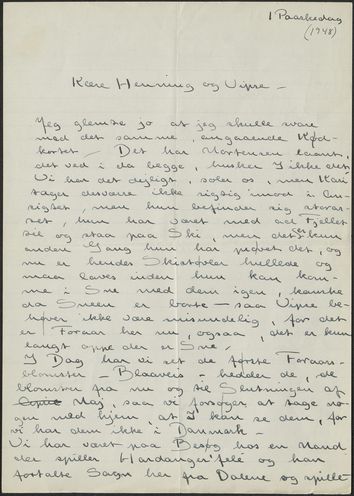 1 Paaskedag
(1948)
Kære Henning og Vipse –
Jeg glemte jo at jeg skulle svare
med det samme, angaaende Kød-
kortet – Det har Mortensen laant,
det ved i da begge, husker I ikke det
Vi har det dejligt, soler os, men Kari
tager desværre ikke rigtig imod i An-
sigtet, men hun befinder sig storar-
tet hun har været med ad Fjellet
til og staa paa Ski, men det er kun
anden Gang hun har prøvet det, og
nu er hendes Skistøvler hullede og
maa laves inden hun kan kom-
me i Sne med dem igen, kanske
da Sneen er borte – saa Vipse be-
høver ikke være misundelig, for det
er Foraar her nu, ogsaa, det er kun
langt oppe der er Sne.
I Dag har vi set de første Foraars-
blomster – Blaaveis – hedder de, de
blomster fra nu og til Slutningen af
Maj, saa vi forsøger at tage no-
gen med hjem, at I kan se dem, for
vi har dem ikke i Danmark –
Vi har været paa Besøg hos en Mand
der spiller Hardangerfele og han
fortalte Sagn her fra Dalene og spillet